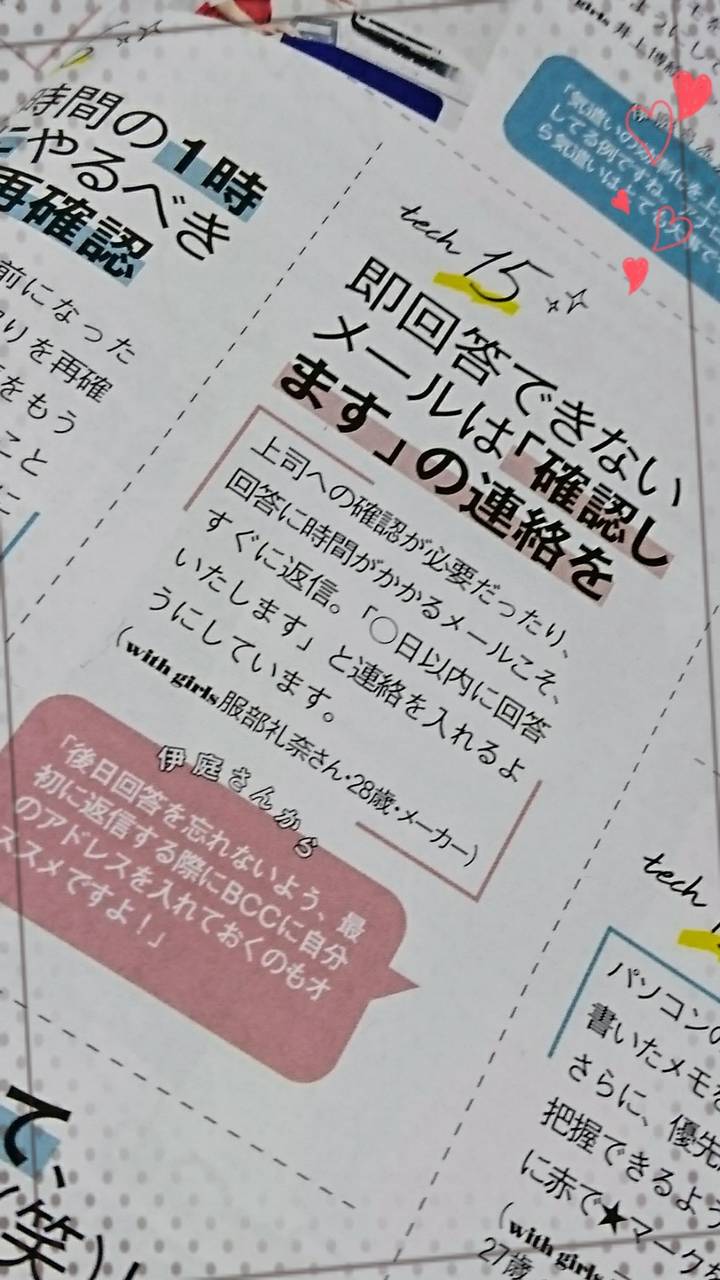 時間の1時
にやるべき
再確認
前になった
りを再確
をもう
こと
に
girls 井上博
「気遣いの
してる例ですね。
ら気遣いは
tech 15
即回答できない
メールは「確認し
ます」の連絡を
上司への確認が必要だったり、
回答に時間がかかるメールこそ、
すぐに返信。「〇日以内に回答
いたします」と連絡を入れるよ
うにしています。
(with girls服部礼奈さん・28歳・メーカー)
伊庭さんから
「後日回答を忘れないよう、最
初に返信する際にBCCに自分
のアドレスを入れておくのもオ
ススメですよ!」
tech
パソコンの
書いたメモを
さらに、優先
把握できるよう
に赤で★マークを
(with girls
27歳
て、
(笑)